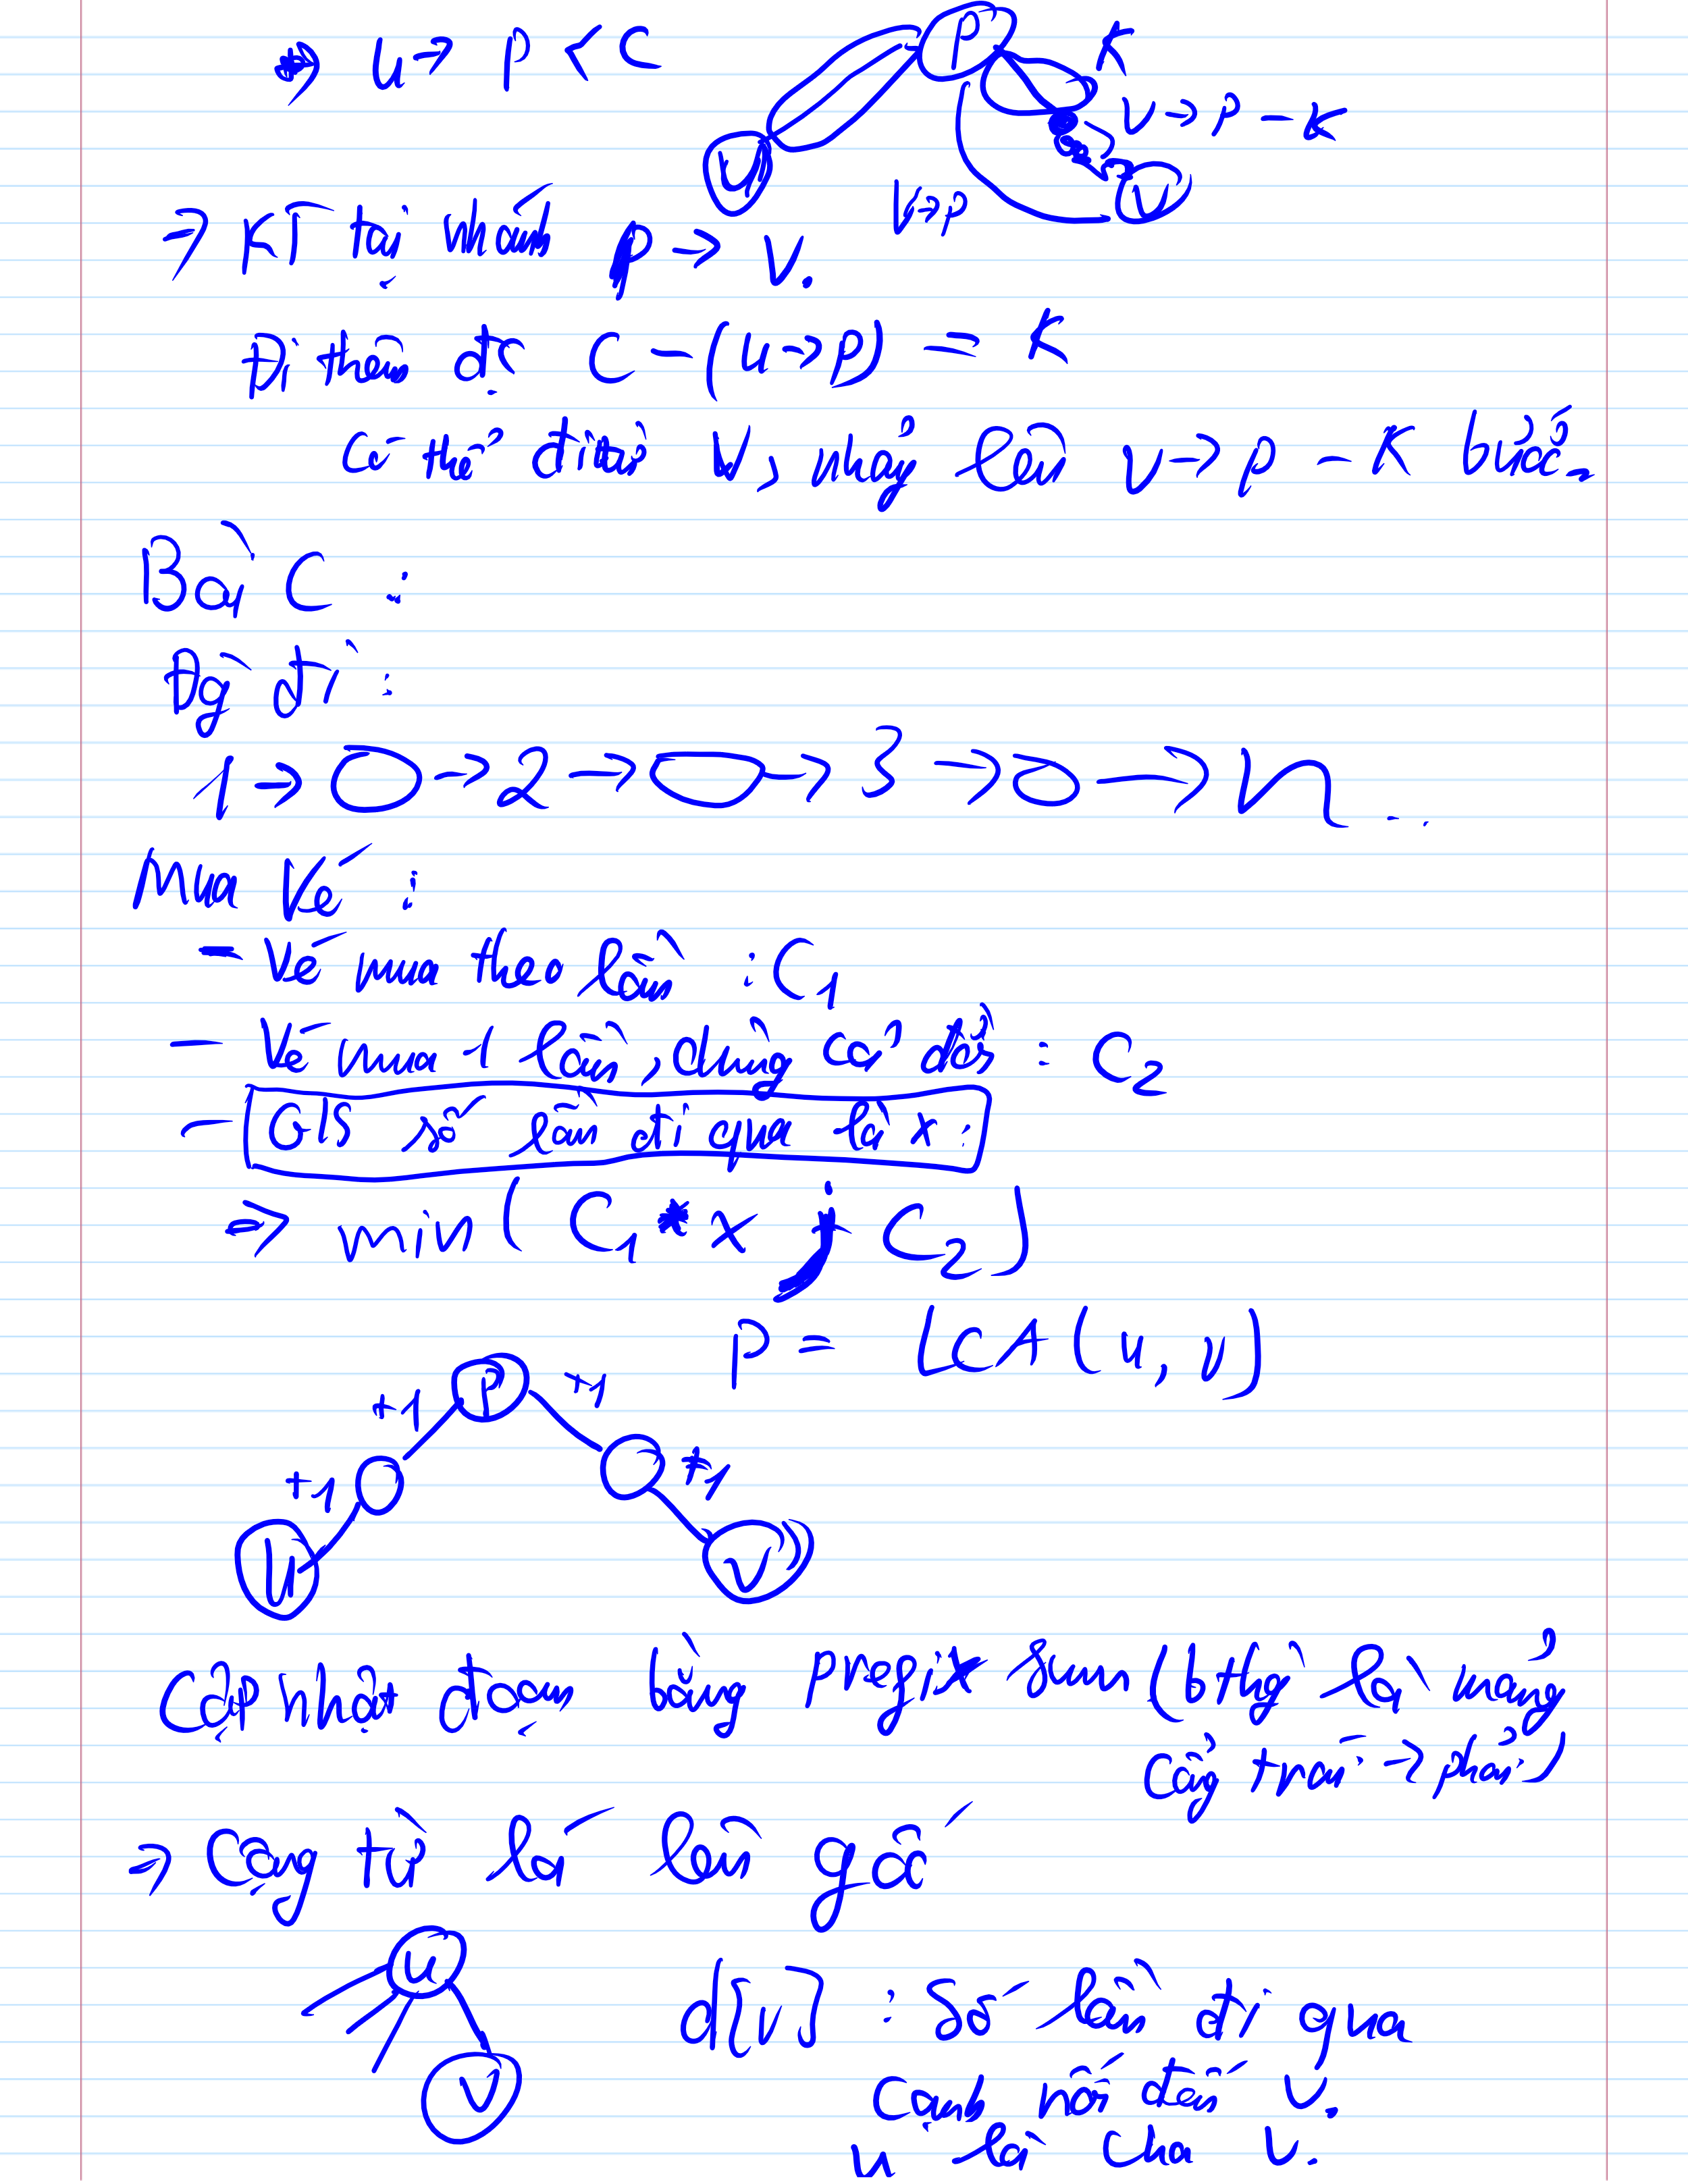 => u -> p < C
P
K
v -> p - K
u
v
v -> p
=> KT tại nhánh p -> v.
Đi thêm đc C - (u -> p) = K
Có thể đi từ V, nhảy lên v -> p - K bước.
Bài C :
Đg đi :
1 -> O -> 2 -> O -> 3 -> O -> n ...
Mua Vé :
- Vé mua theo lần : C1
- Vé mua 1 lần, dùng cả đời : C2
- G/S số lần đi qua là x :
=> min ( C1 * x ; C2 )
P = LCA(u, v)
P
+1 +1
+1 +1
u v
Cập nhật đoạn bằng prefix sum (bthg là mảng
cộng trái -> phải)
=> Cộng từ lá lên gốc
u
v
d[v] : Số lần đi qua
cạnh nối đến v.
u là cha v.